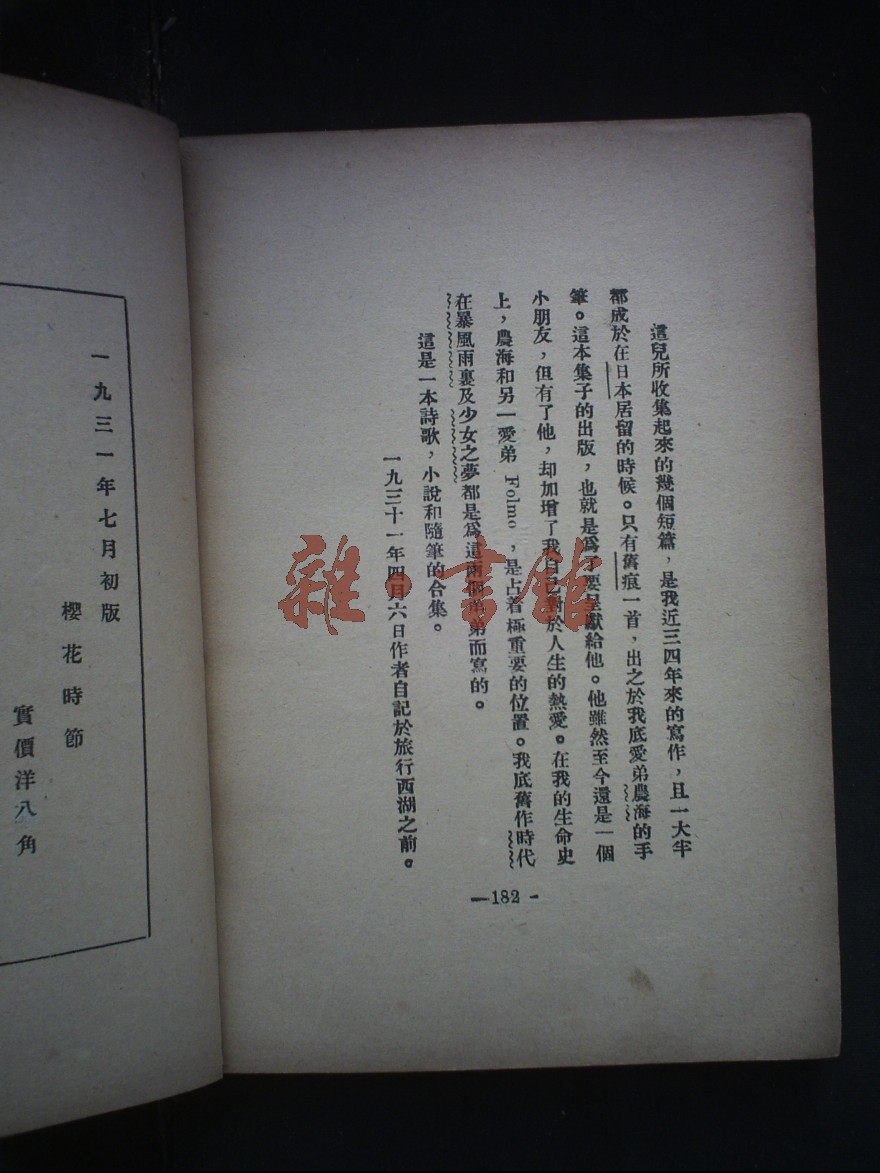 這兒所收集起來的幾個短篇，是我近三四年來的寫作，且一大半
都成於在日本居留的時候。只有舊痕一首，出之於我底愛弟農海的手
筆。這本集子的出版，也就是爲了要呈獻給他。他雖然至今還是一個
小朋友，但有了他，却加增了我自己對於人生的熱愛。在我的生命史
上，農海和另一愛弟 Folmo，是占着極重要的位置。我底舊作時代
在暴風雨裏及少女之夢都是爲這兩個弟弟而寫的。
這是一本詩歌，小說和隨筆的合集。
一九三十一年四月六日作者自記於旅行西湖之前。
—182-
一九三一年七月初版
櫻花時節
實價洋八角
雜·書館